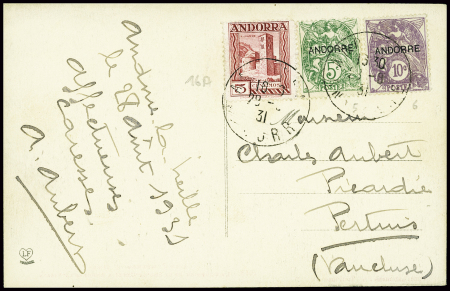 ANDORRA
5
ANDORRE
5c
ANDORRE
10c
16A
5
6
31
31
Andorre-la-Vieille
le 28 août 1931
affectueuses
caresses
A. Aubert
Monsieur
Charles Aubert
Picardie
Pertuis
(Vaucluse)